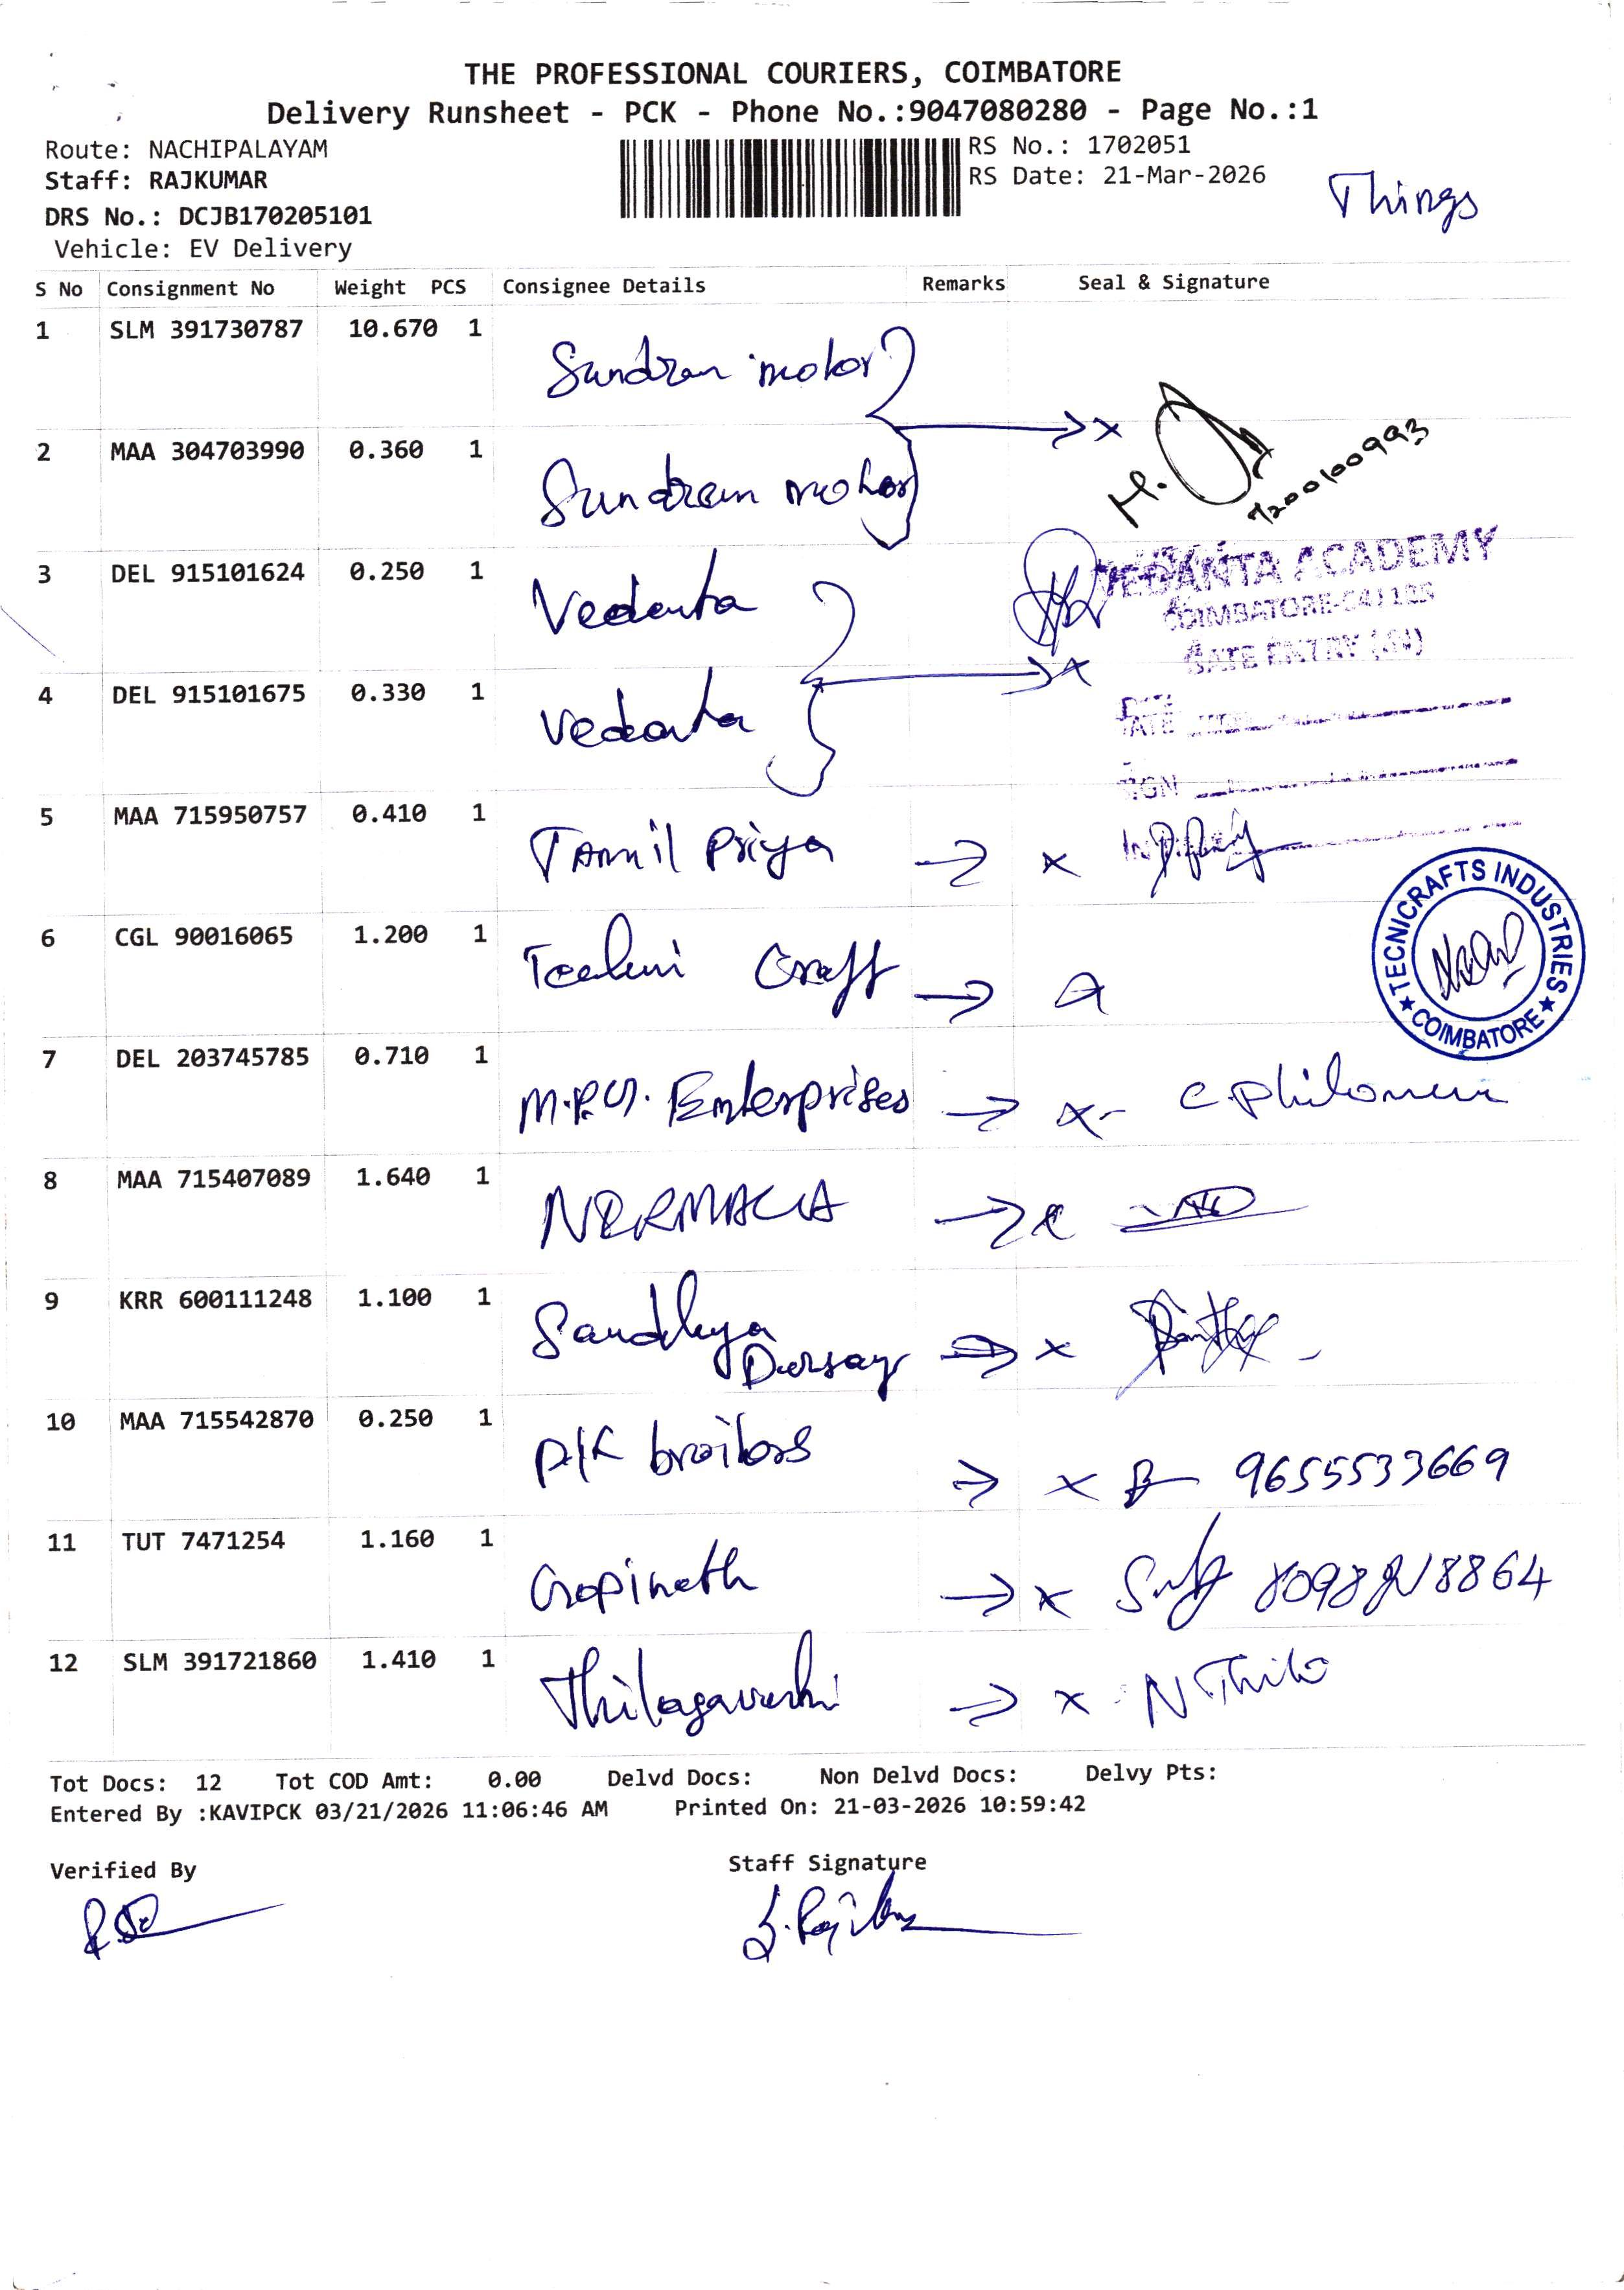 THE PROFESSIONAL COURIERS, COIMBATORE
Delivery Runsheet - PCK - Phone No.:9047080280 - Page No.:1
Route: NACHIPALAYAM
RS No.: 1702051
Staff: RAJKUMAR
RS Date: 21-Mar-2026
Things
DRS No.: DCJB170205101
Vehicle: EV Delivery
S No Consignment No Weight PCS Consignee Details Remarks Seal & Signature
1 SLM 391730787 10.670 1 Sundram motor
2 MAA 304703990 0.360 1 Sundram motor
7200100993
3 DEL 915101624 0.250 1 Vedanta
VEDANTA ACADEMY
COIMBATORE-641105
GATE ENTRY (IN)
4 DEL 915101675 0.330 1 Vedanta
DATE
SIGN
5 MAA 715950757 0.410 1 Tamil Priya
6 CGL 90016065 1.200 1 Techni Craft
TECNICRAFTS INDUSTRIES
COIMBATORE
7 DEL 203745785 0.710 1 Enterprises
8 MAA 715407089 1.640 1
9 KRR 600111248 1.100 1 Sandhya
10 MAA 715542870 0.250 1 broilers 9655533669
11 TUT 7471254 1.160 1 Gopinath
12 SLM 391721860 1.410 1 N Thila
Tot Docs: 12 Tot COD Amt: 0.00 Delvd Docs: Non Delvd Docs: Delvy Pts:
Entered By :KAVIPCK 03/21/2026 11:06:46 AM Printed On: 21-03-2026 10:59:42
Verified By
Staff Signature